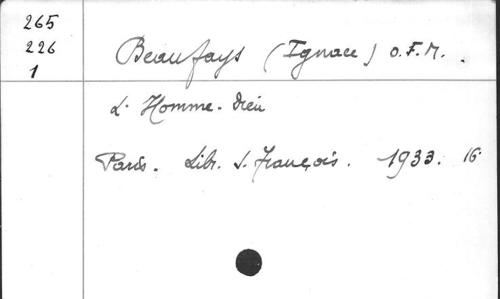 265
226
1
Beaufays (Ignace) O.F.M.
L'Homme-Dieu
Paris. Libr. S. François. 1933. 16°